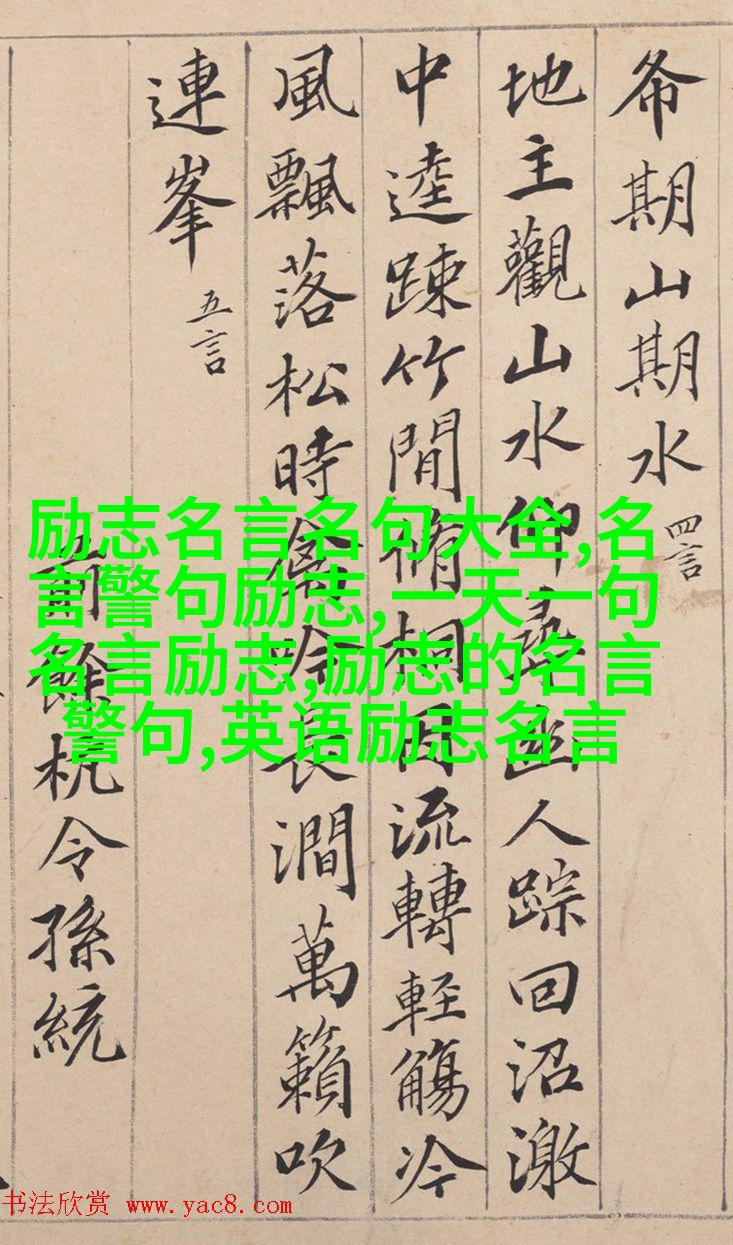 希期山期水 四言
地主觀山水仰尋幽人踪回沼激
中逵踈竹間脩桐因流轉輕觴冷
風飄落松時禽吟長澗萬籟吹
連峯 五言
前餘杭令孫統
励志名言名句大全,名
言警句励志,一天一句
名言励志,励志的名言
警句,英语励志名言
书法欣赏 www.yac8.com